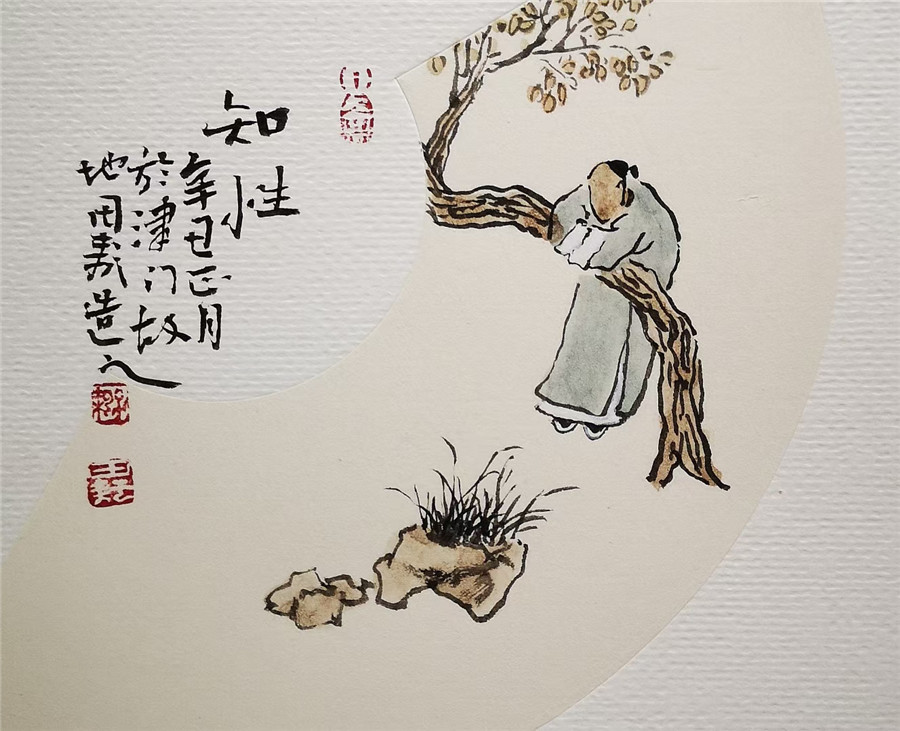 知性
辛丑正月
於津门故
地田義造之